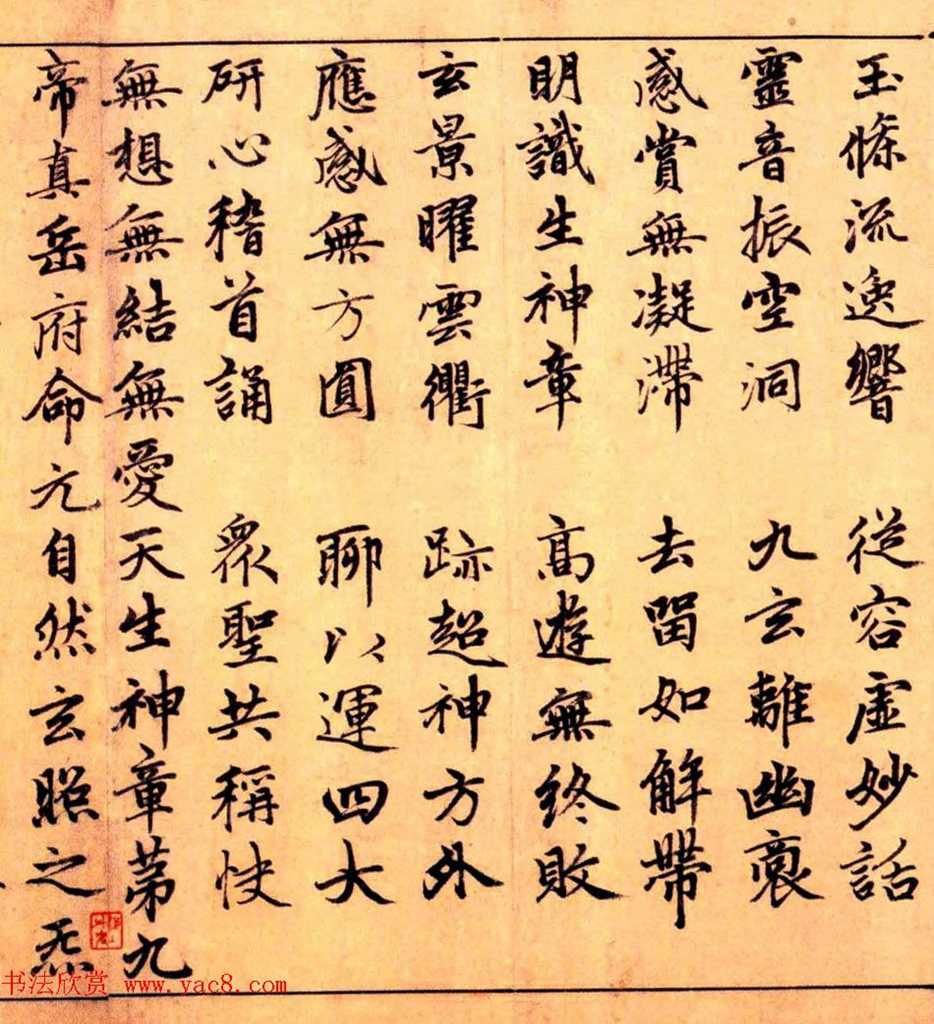 玉條流逸響　從容虛妙話
靈音振空洞　九玄離幽裔
感賞無凝滯　去留如解帶
明識生神章　高遊無終敗
玄景曜雲衢　跡超神方外
應感無方圓　聊以運四大
研心稽首誦　眾聖共稱快
無想無結無愛天生神章第九
帝真岳府命元自然玄照之炁
书法欣赏 www.yac8.com